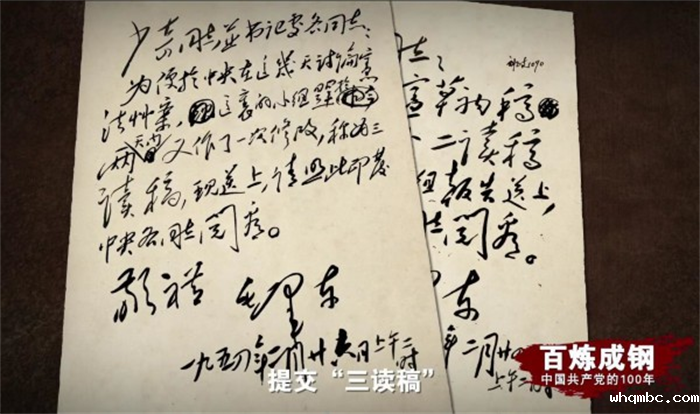 少奇同志並书记处各同志:
为便於中央在这几天讨论宪
法草案,这裏的小组
两天内又作了一次修改,称为三
读稿,现送上,请照此印发
中央各同志阅看。
敬礼
毛泽东
一九五四年二月廿六日上午二时
宪草初稿
二读稿
组报告送上,
阅看。
东
年二月廿四
上午二
提交“三读稿”
百炼成钢
中国共产党的100年
whqmbc.com